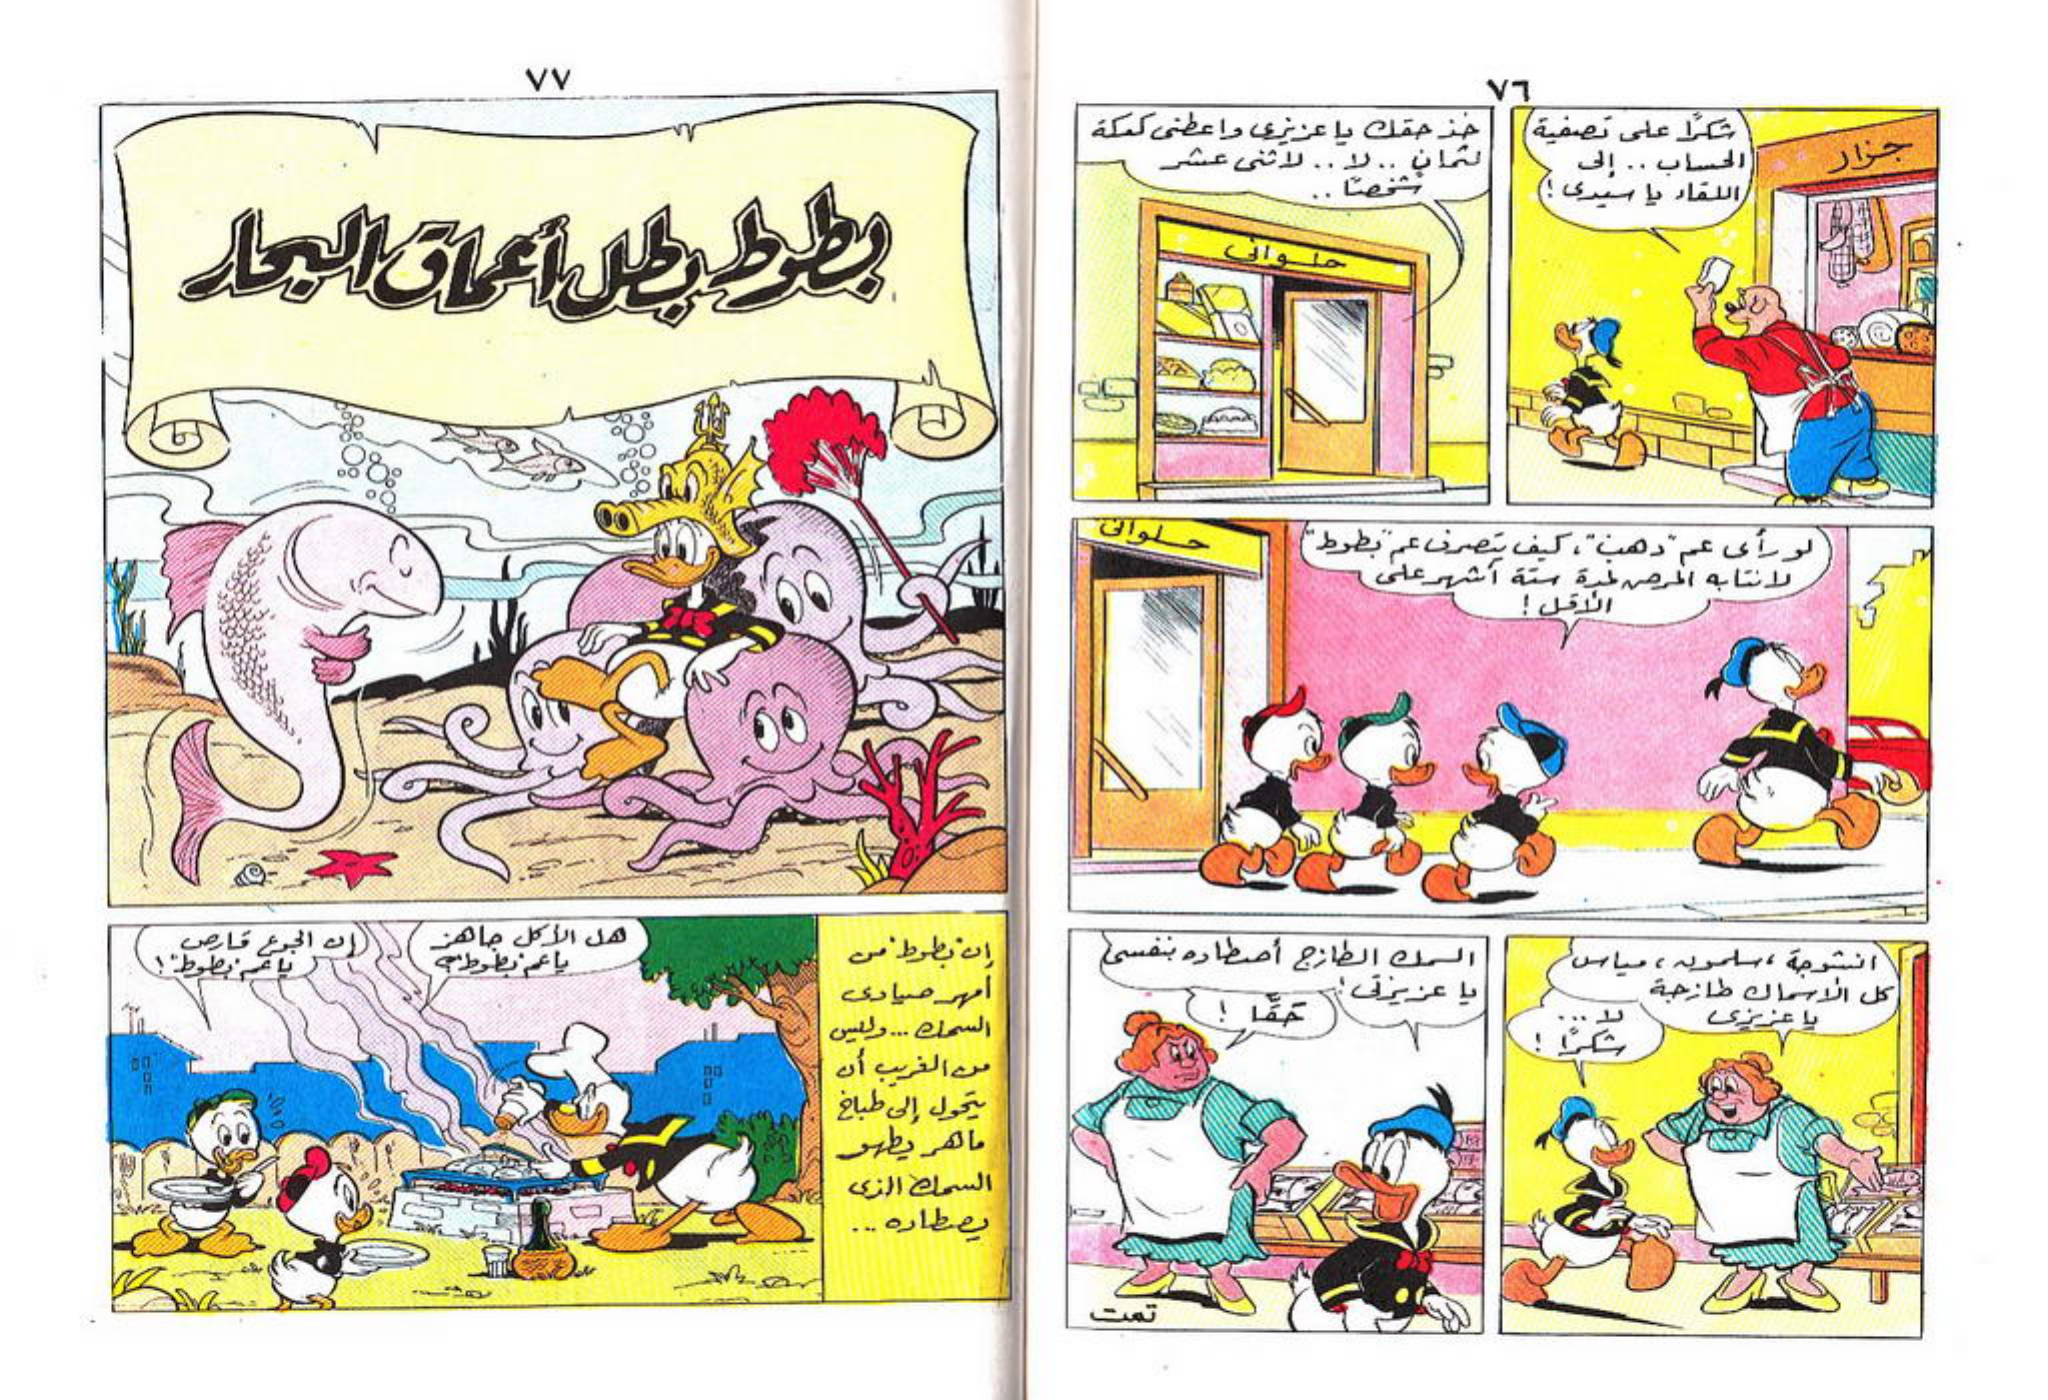 ٧٦
شكرًا على تصفية
الحساب .. إلى
اللقاء يا سيدى !
جزار
خذ حقك يا عزيزى واعطنى كعكة
لثمانٍ .. لا .. لاثنى عشر
شخصًا ..
حلوانى
لو رأى عم "دهب"، كيف يتصرف عم "بطوط"
لانتابه المرض لمدة ستة أشهر على
الأقل !
حلوانى
انشوجة ، سلمون ، مياس
كل الأسماك طازجة
يا عزيزى
لا ...
شكرًا !
السمك الطازج أصطاده بنفسى
يا عزيزتى !
حقًا !
تمت
٧٧
بطوط بطل أعماق البحار
إن "بطوط" من
أمهر صيادى
السمك ... وليس
من الغريب أن
يتحول إلى طباخ
ماهر يطهو
السمك الذى
يصطاده ...
هل الأكل جاهز
يا عم "بطوط"؟
إن الجوع قارص
يا عم "بطوط" !